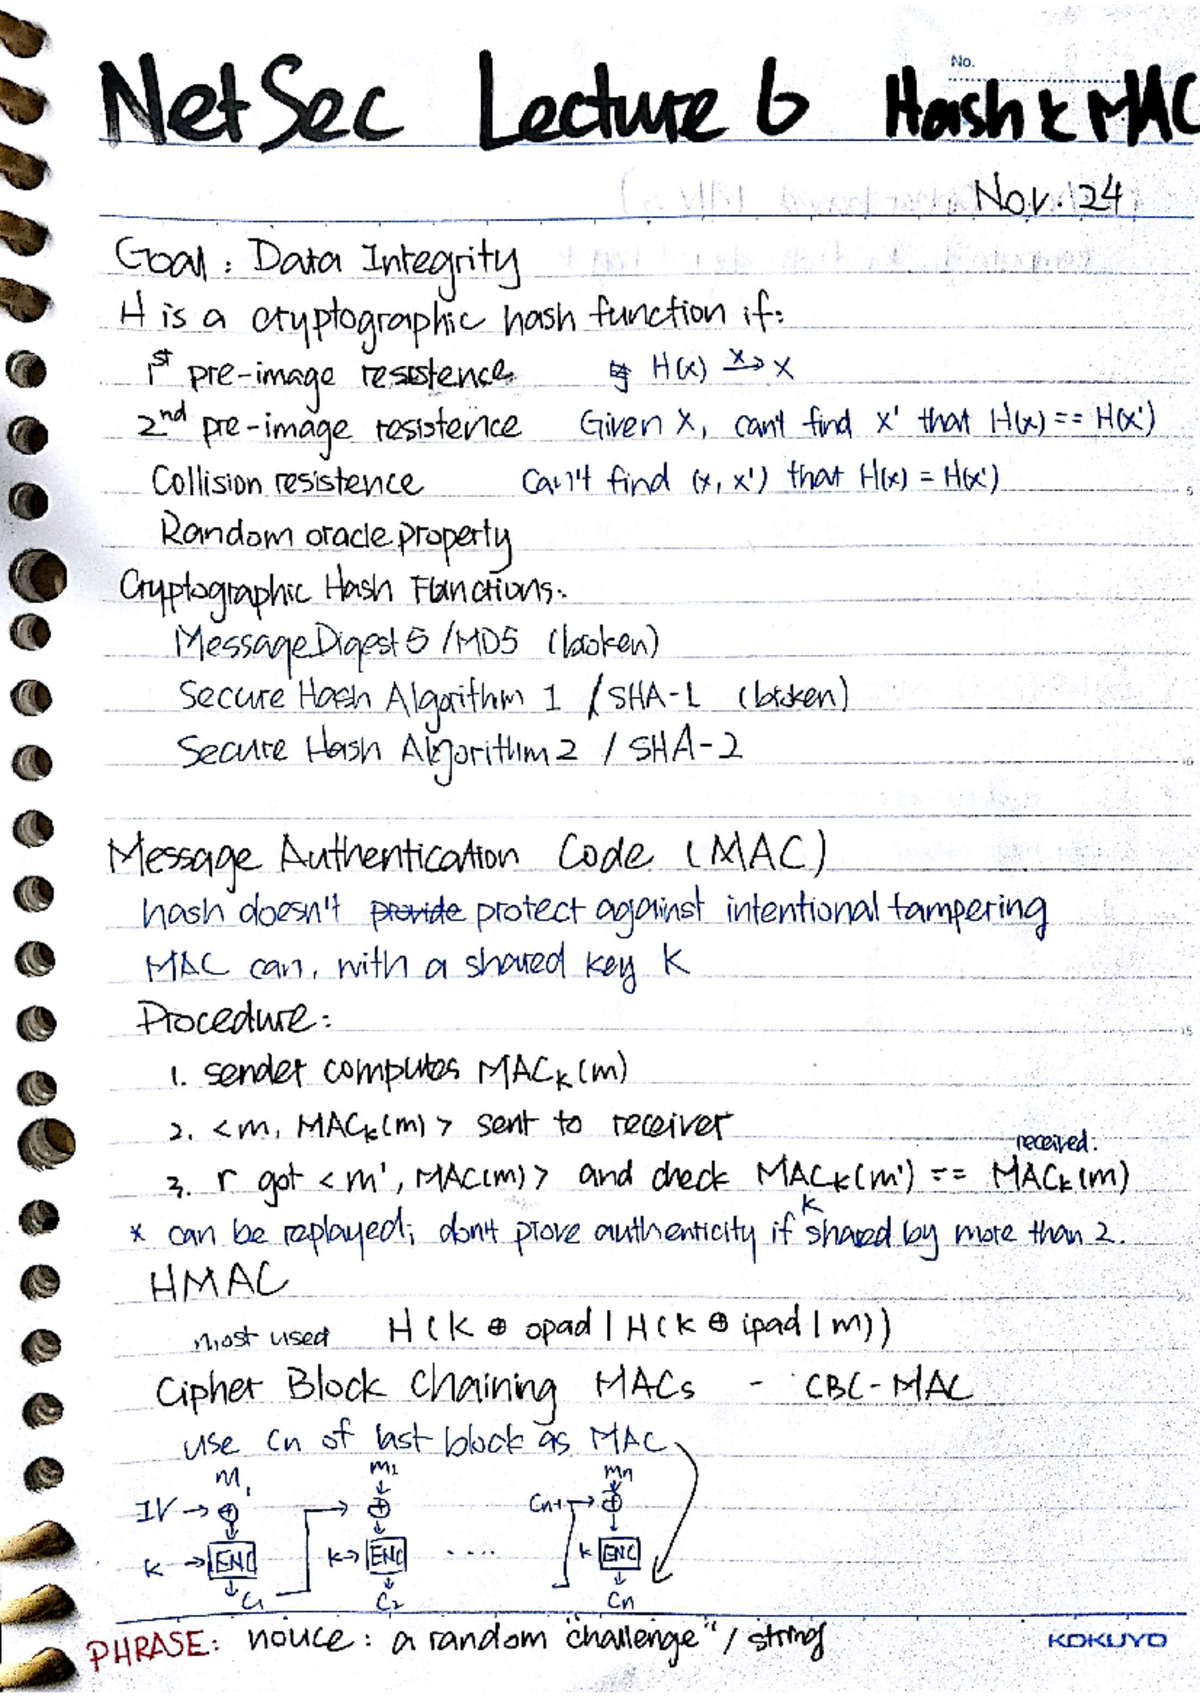 No.
NetSec Lecture 6 Hash & MAC
Nov. 24
Goal: Data Integrity
H is a cryptographic hash function if:
1st pre-image resistence H(x) x→ x
2nd pre-image resistence Given x, can't find x' that H(x) == H(x')
Collision resistence Can't find (x, x') that H(x) = H(x')
5
Random oracle property
Cryptographic Hash Functions:
Message Digest 5 / MD5 (broken)
Secure Hash Algorithm 1 / SHA-1 (broken)
Secure Hash Algorithm 2 / SHA-2
10
Message Authentication Code (MAC)
hash doesn't provide protect against intentional tampering
MAC can, with a shared key K
Procedure:
15
1. sender computes MACk(m)
2. <m, MACk(m)> sent to receiver
received.
3. r got <m', MAC(m)> and check MACk(m') == MACk(m)
k
* can be replayed; don't prove authenticity if shared by more than 2.
HMAC
most used H(k ⊕ opad | H(k ⊕ ipad | m))
Cipher Block Chaining MACs - CBC-MAC
use Cn of last block as MAC
m1 m2 mn
IV → ⊕ → ⊕ Cn-1 → ⊕
K → ENC k → ENC ..... k ENC
C1 C2 Cn
PHRASE: nouce: a random "challenge" / string
KOKUYO